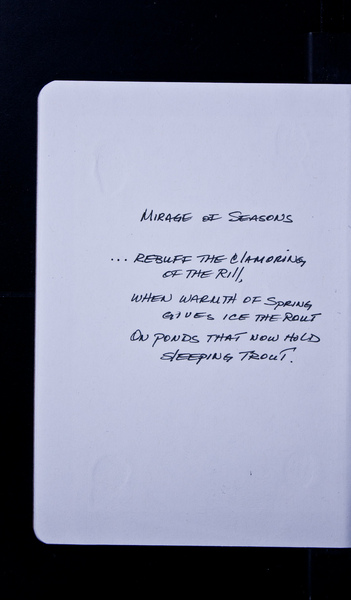 MIRAGE OF SEASONS
... REBUFF THE CLAMORING
OF THE RILL,
WHEN WARMTH OF SPRING
GIVES ICE THE ROUT
ON PONDS THAT NOW HOLD
SLEEPING TROUT.